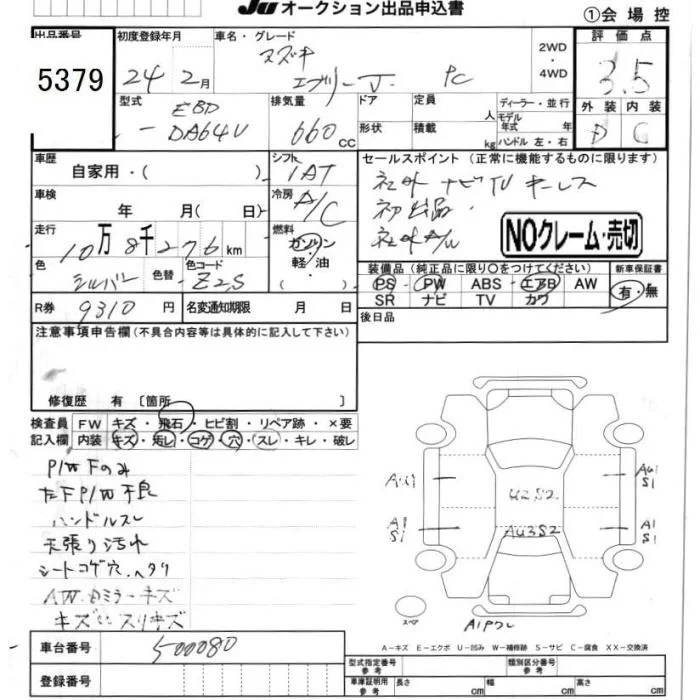 JU オークション出品申込書
①会場控
出品番号 5379
初度登録年月 24年 2月
車名・グレード スズキ エブリー J. PC
2WD・4WD
評価点 3.5
外装 内装
D C
型式 EBD-DA64V
排気量 660cc
ドア 形状
定員 人
積載 kg
ディーラー・並行
モデル年式 年
ハンドル 左・右
車歴 自家用・( )
シフト IAT
車検 年 月( 日)
冷房 A/C
走行 10万8千276km
燃料 ガソリン・軽油・
色 シルバー 色替
色コード Z2S
R券 9310円
名変通知期限 月 日
セールスポイント (正常に機能するものに限ります)
社外ナビTV キーレス
初出品.
社外A/W
NOクレーム・売切
装備品(純正品に限り○をつけてください)
PS PW ABS エアB AW
SR ナビ TV カワ
新車保証書
有・無
後日品
注意事項申告欄(不具合内容等は具体的に記入して下さい)
修復歴 有〔箇所
検査員記入欄
FW キズ・飛石・ヒビ割・リペア跡・×要
内装 キズ・汚レ・コゲ・穴・スレ・キレ・破レ
P/W Fのみ
左F P/W不良
ハンドルスレ
天張り汚れ
シートコゲ穴.ヘタリ
A/W ミラーキズ
キズ スリキズ
A1
U2S2
AU3S2
AU1
S1
A1
S1
A1
S1
スペア
A1Pワレ
A-キズ E-エクボ U-凹み W-補修跡 S-サビ C-腐食 XX-交換済
車台番号 500080
登録番号
型式指定番号 参考
類別区分番号 参考
車庫証明用参考 長さ cm 幅 cm 高さ cm